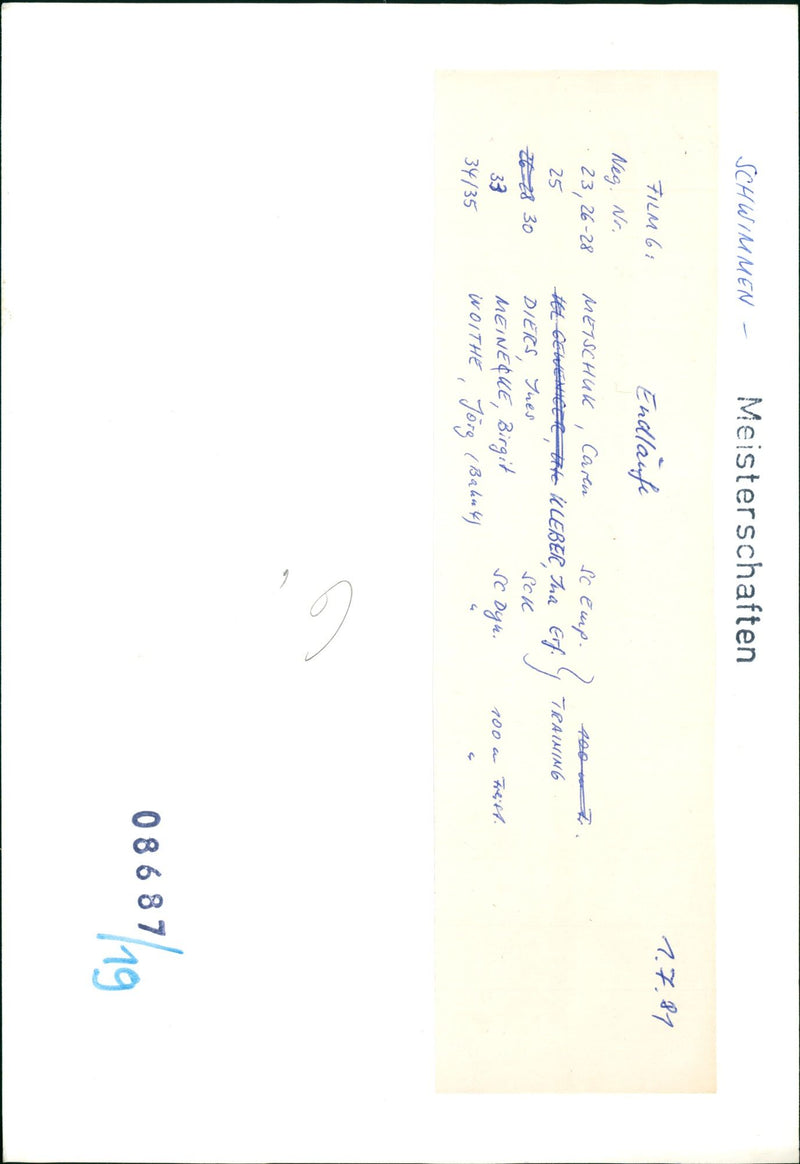 SCHWIMMEN - Meisterschaften
FILM 6: Endläufe 1.7.81
Neg. Nr.
23, 26-28 METSCHUK, Caren SC Emp. 100 m F.
25 KLEBER, Ina Erf. } TRAINING
26-28 30 DIERS, Ines SCK
33 MEINECKE, Birgit SC Dyn. 100 m Freist.
34/35 WOITHE, Jörg (Bahn 4) " "
6.
08687/19